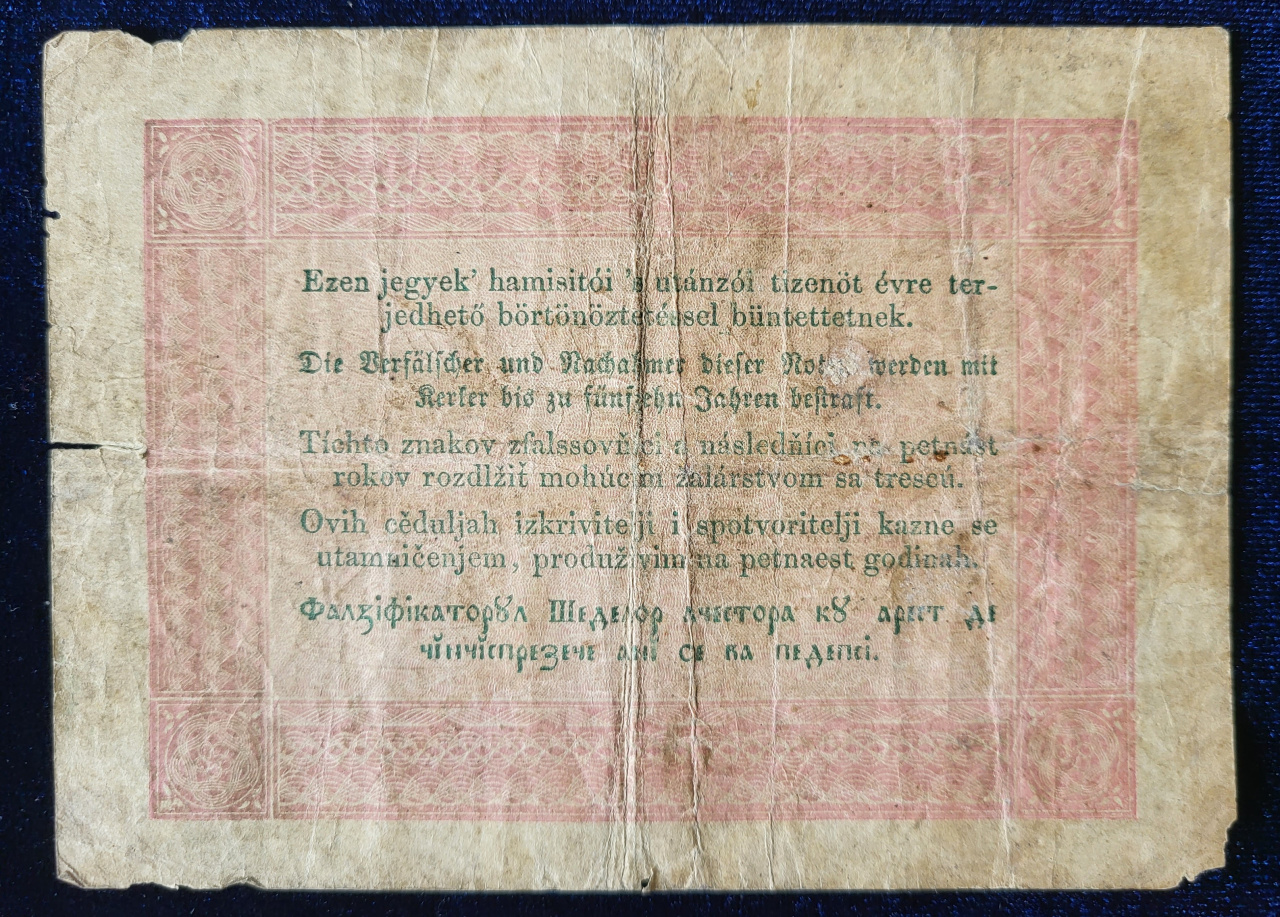 Ezen jegyek’ hamisitói ’s utánzói tizenöt évre ter-
jedhető börtönöztetéssel büntettetnek.
Die Verfälscher und Nachahmer dieser Noten werden mit
Kerker bis zu fünfzehn Jahren bestraft.
Tíchto znakov zfalssovňíci a následňíci na petnást
rokov rozdlžiť mohúcím žalárstvom sa trescú.
Ovih cěduljah izkrivitelji i spotvoritelji kazne se
utamničenjem, produživim na petnaest godinah.
Фалꙁіфікаторꙋл Шеделор ачестора кꙋ арест де
чїнчіспреꙁече ані се ва педепсі.